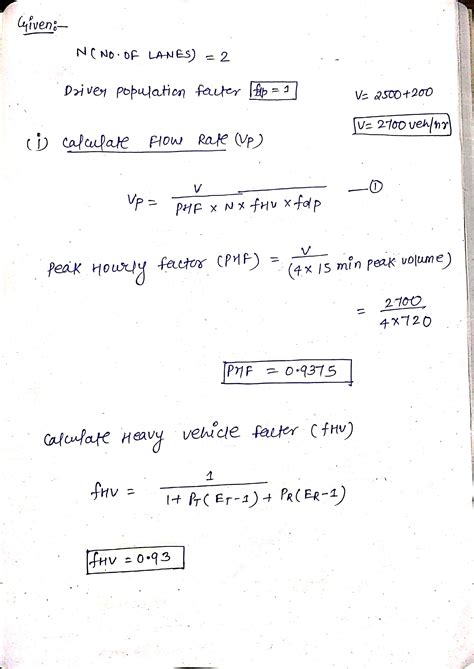 Given:-
N(NO. OF LANES) = 2
Driver population factor fdp = 1
V = 2500+200
V = 2700 veh/hr
(i) Calculate Flow Rate (Vp)
Vp = V / PHF × N × fHV × fdp —①
Peak Hourly factor (PHF) = V / (4 × 15 min peak volume)
= 2700 / 4×720
PHF = 0.9375
Calculate Heavy vehicle factor (fHV)
fHV = 1 / 1 + PT(ET-1) + PR(ER-1)
fHV = 0.93